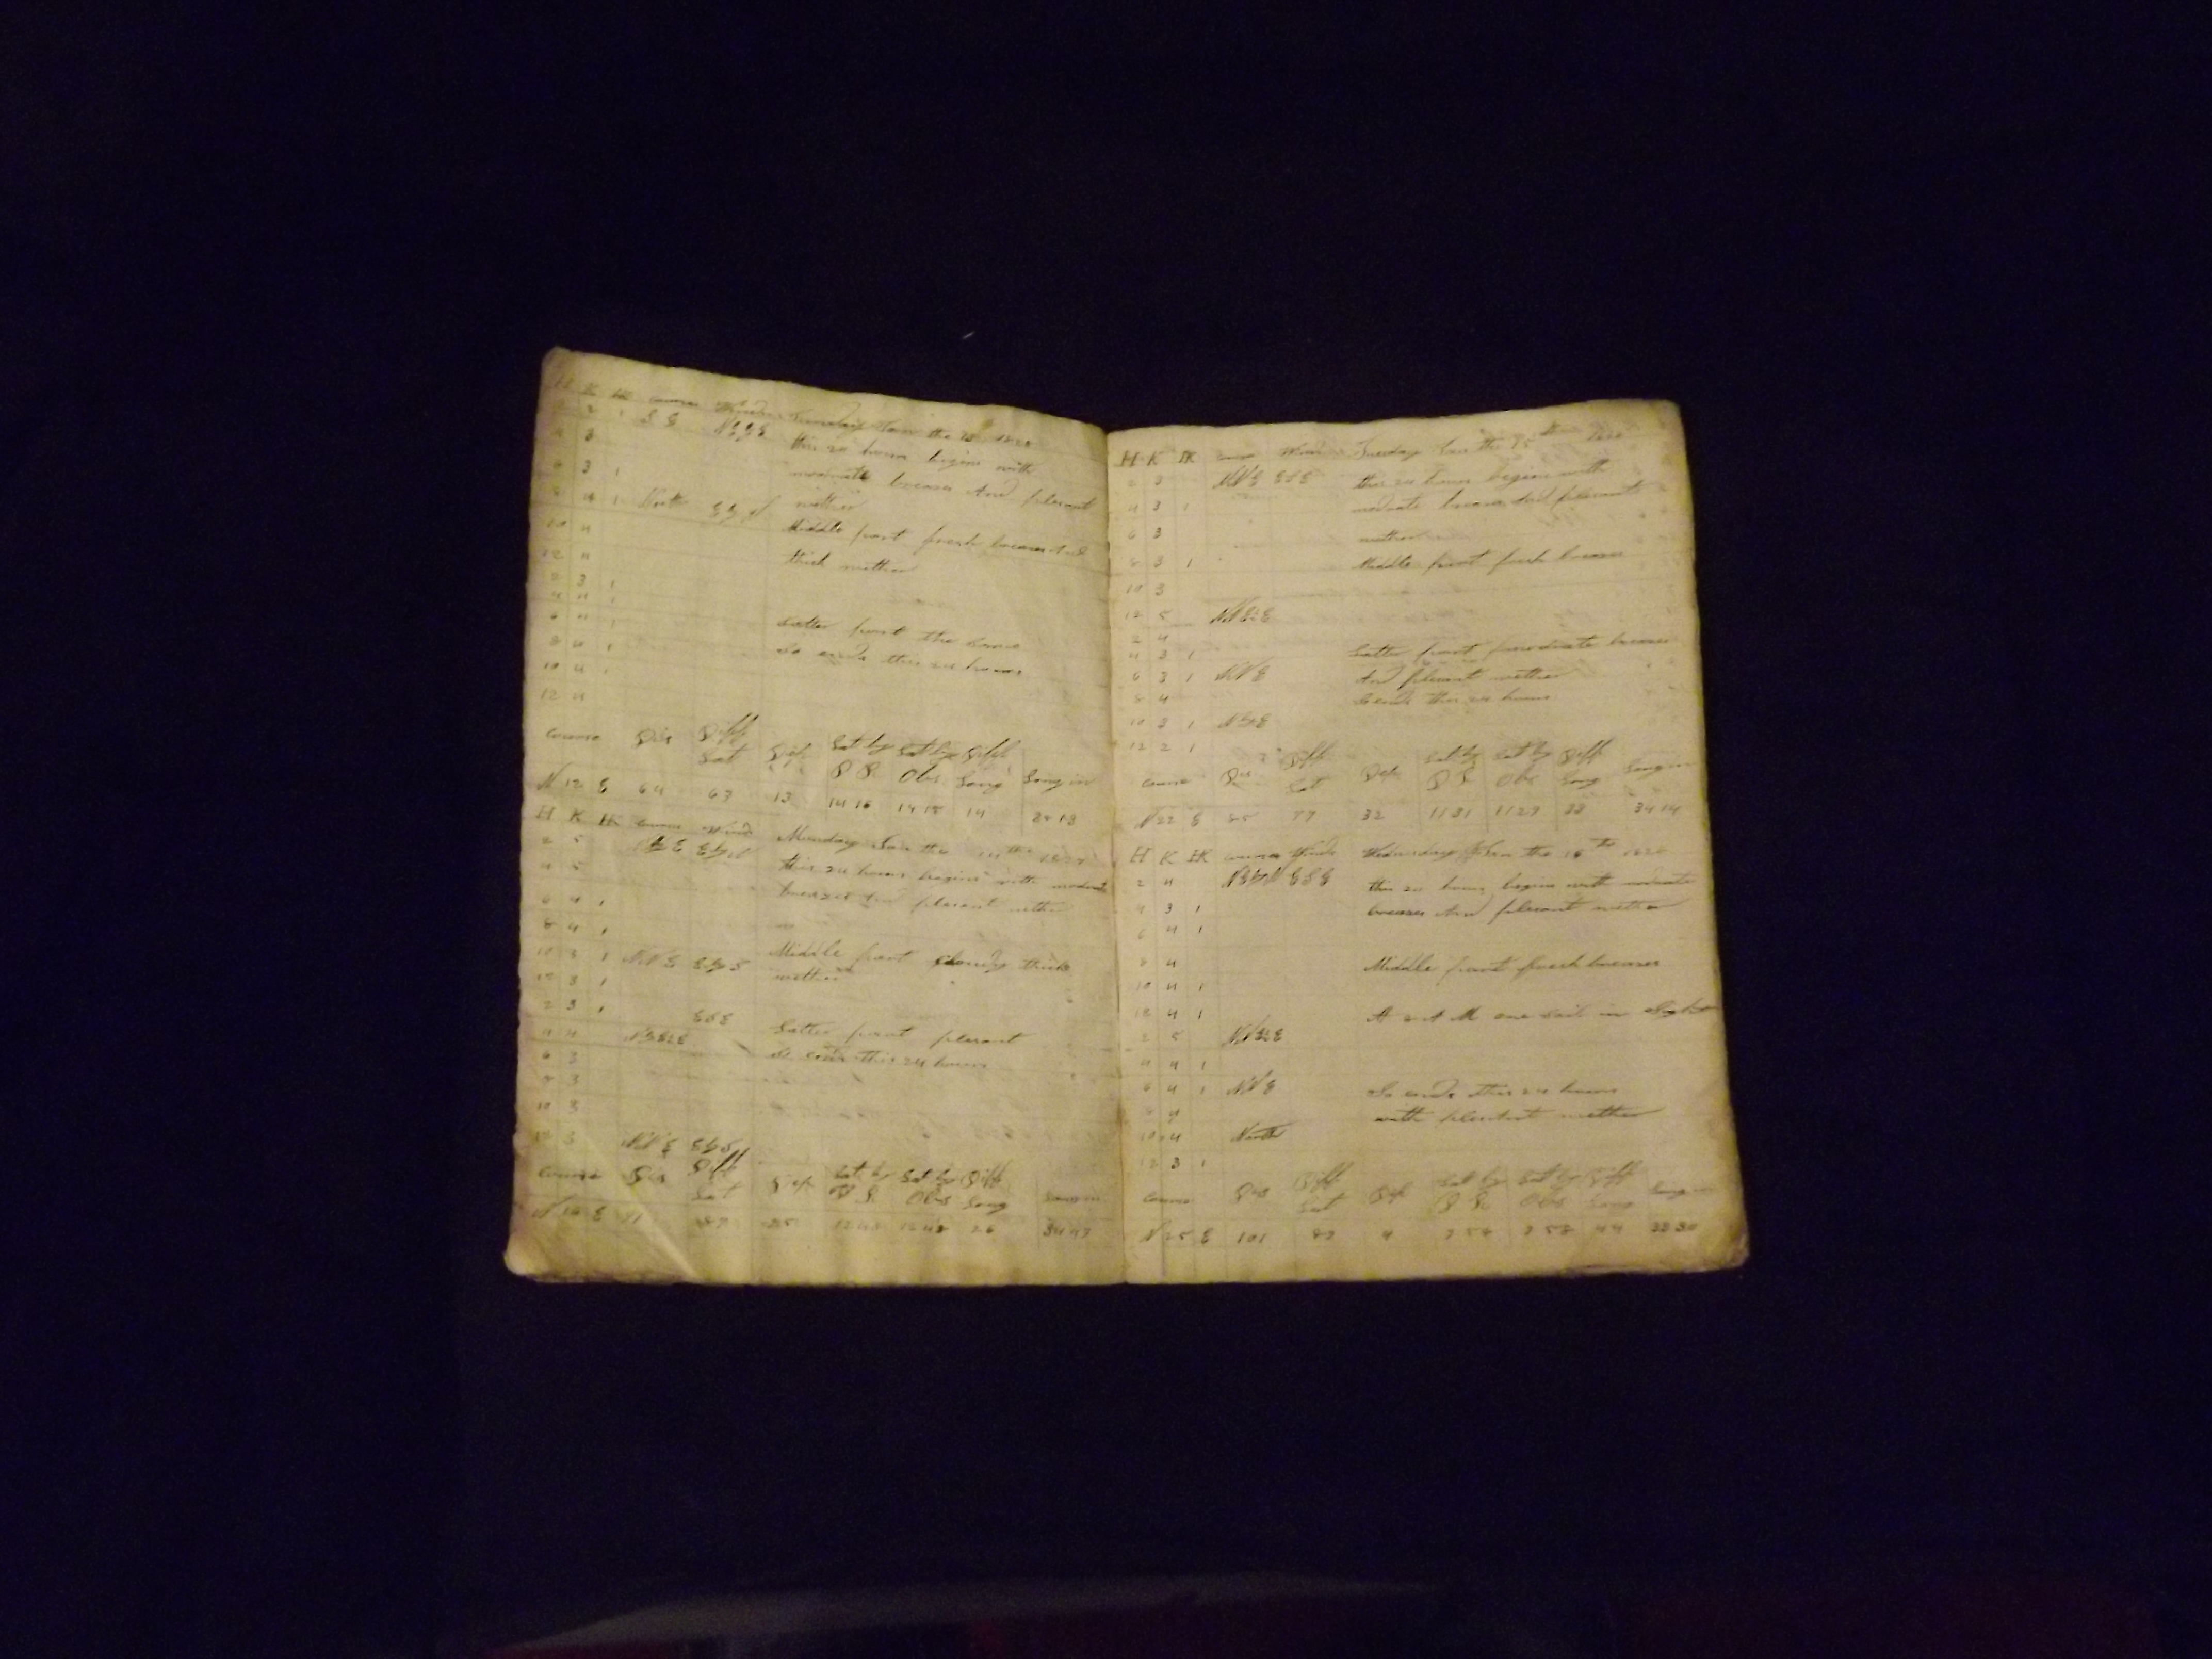 H K HK course Winds Sunday Jan the 13 1828
2 1 S E
this 24 hours begins with
4 3
moderate breases And plesant
6 3 1
wether
8 4 1 North E by N
Middle part fresh breases And
10 4
thick wether
12 4
2 3 1
4 4 1
6 4 1 Latter part the same
8 4 1 So ends this 24 hours
10 4 1
12 4
course Dis Diff Lat Dep Lat by D R Lat by Obs Diff Long Long in
N 12 E 64 63 13 14 15 14 15 14
H K HK course Wind Munday Jan the 14th
2 5 E by N
this 24 hours begins with moderate
4 5
breases And plesant wether
6 4 1
8 4 1
10 3 1 NNE E by S Middle part thick
12 3 1 wether
2 3 1 ESE
4 4 Latter part plesant
6 3 So ends this 24 hours
8 3
10 3
12 3 NNE E by S
course Dis Diff Lat Dep Lat by D R Lat by Obs Diff Long Long in
N 16 E 91 87 25 12 48 12 48 26 34 47
H K HK course Winds Tuesday Jan the 15th
2 3 NNE ESE this 24 hours begin with
4 3 1 modrate breases And plesant
6 3 wether
8 3 1 Middle part fresh breases
10 3
12 5
2 4
4 3 1 Latter part modrate breases
6 3 1 NNE And plesant wether
8 4 So ends this 24 hours
10 3 1
12 2 1
course Dis Diff Lat Dep Lat by D R Lat by Obs Diff Long Long in
N 22 E 85 77 32 11 31 11 29 33 34 14
H K HK courses Winds Wednesday Jan the 16th
2 4 ESE this 24 hours begins with modrate
4 3 1 breases And plesant wether
6 4 1
8 4 Middle part fresh breases
10 4 1
12 4 1 At A M one sail in Sight
2 5
4 4 1
6 4 1 NNE So ends this 24 hours
8 4 with plesant wether
10 4 North
12 3 1
course Dis Diff Lat Dep Lat by D R Lat by Obs Diff Long Long in
N 25 E 101 44 33 30